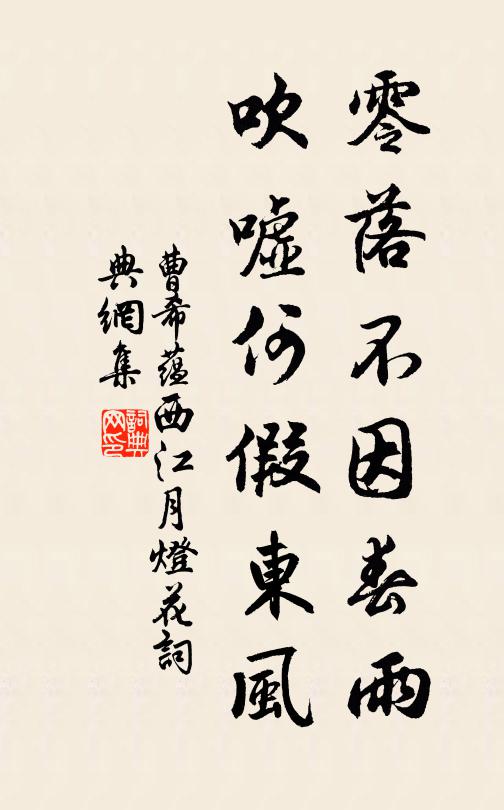 零落不因春雨
吹噓何假東風
曹希蘊西江月燈花詞
典網集
詞典
网印